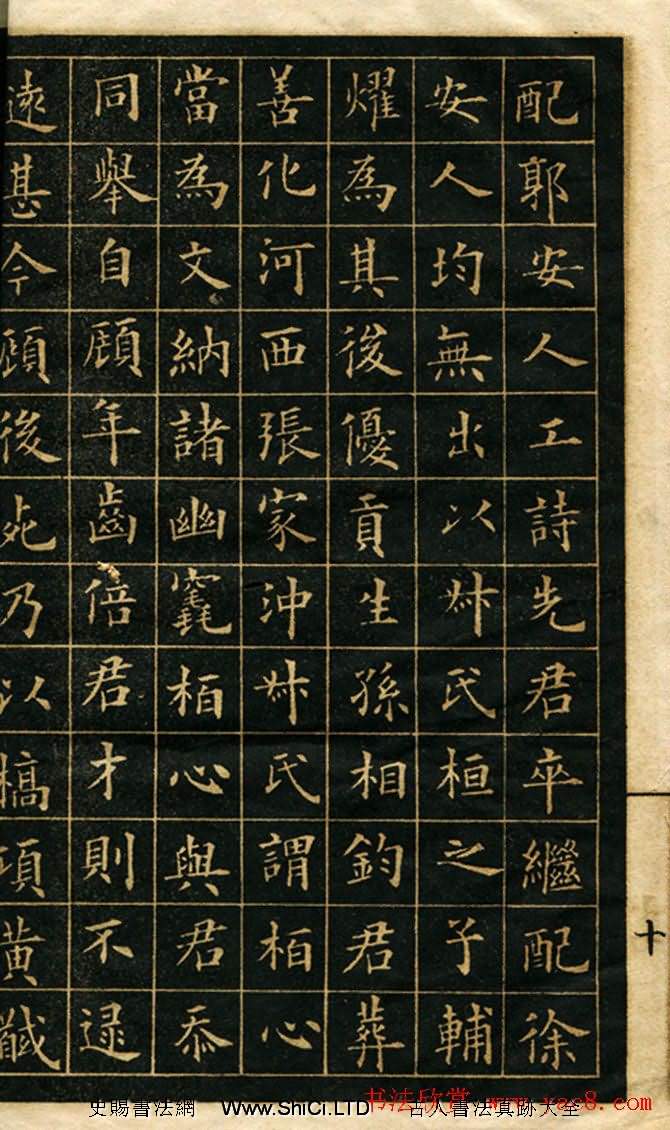 配郭安人工詩先君卒繼配徐
安人均無出以叔氏桓之子輔
燿為其後優貢生孫相鈞君葬
善化河西張家沖叔氏謂栢心
當為文納諸幽竁栢心與君忝
同舉自顧年齒倍君才則不逮
遠甚今顧後死乃以槁項黄馘
十
史賜書法網 Www.ShiCi.LTD 古人書法真跡大全
书法欣赏 www.yac8.com